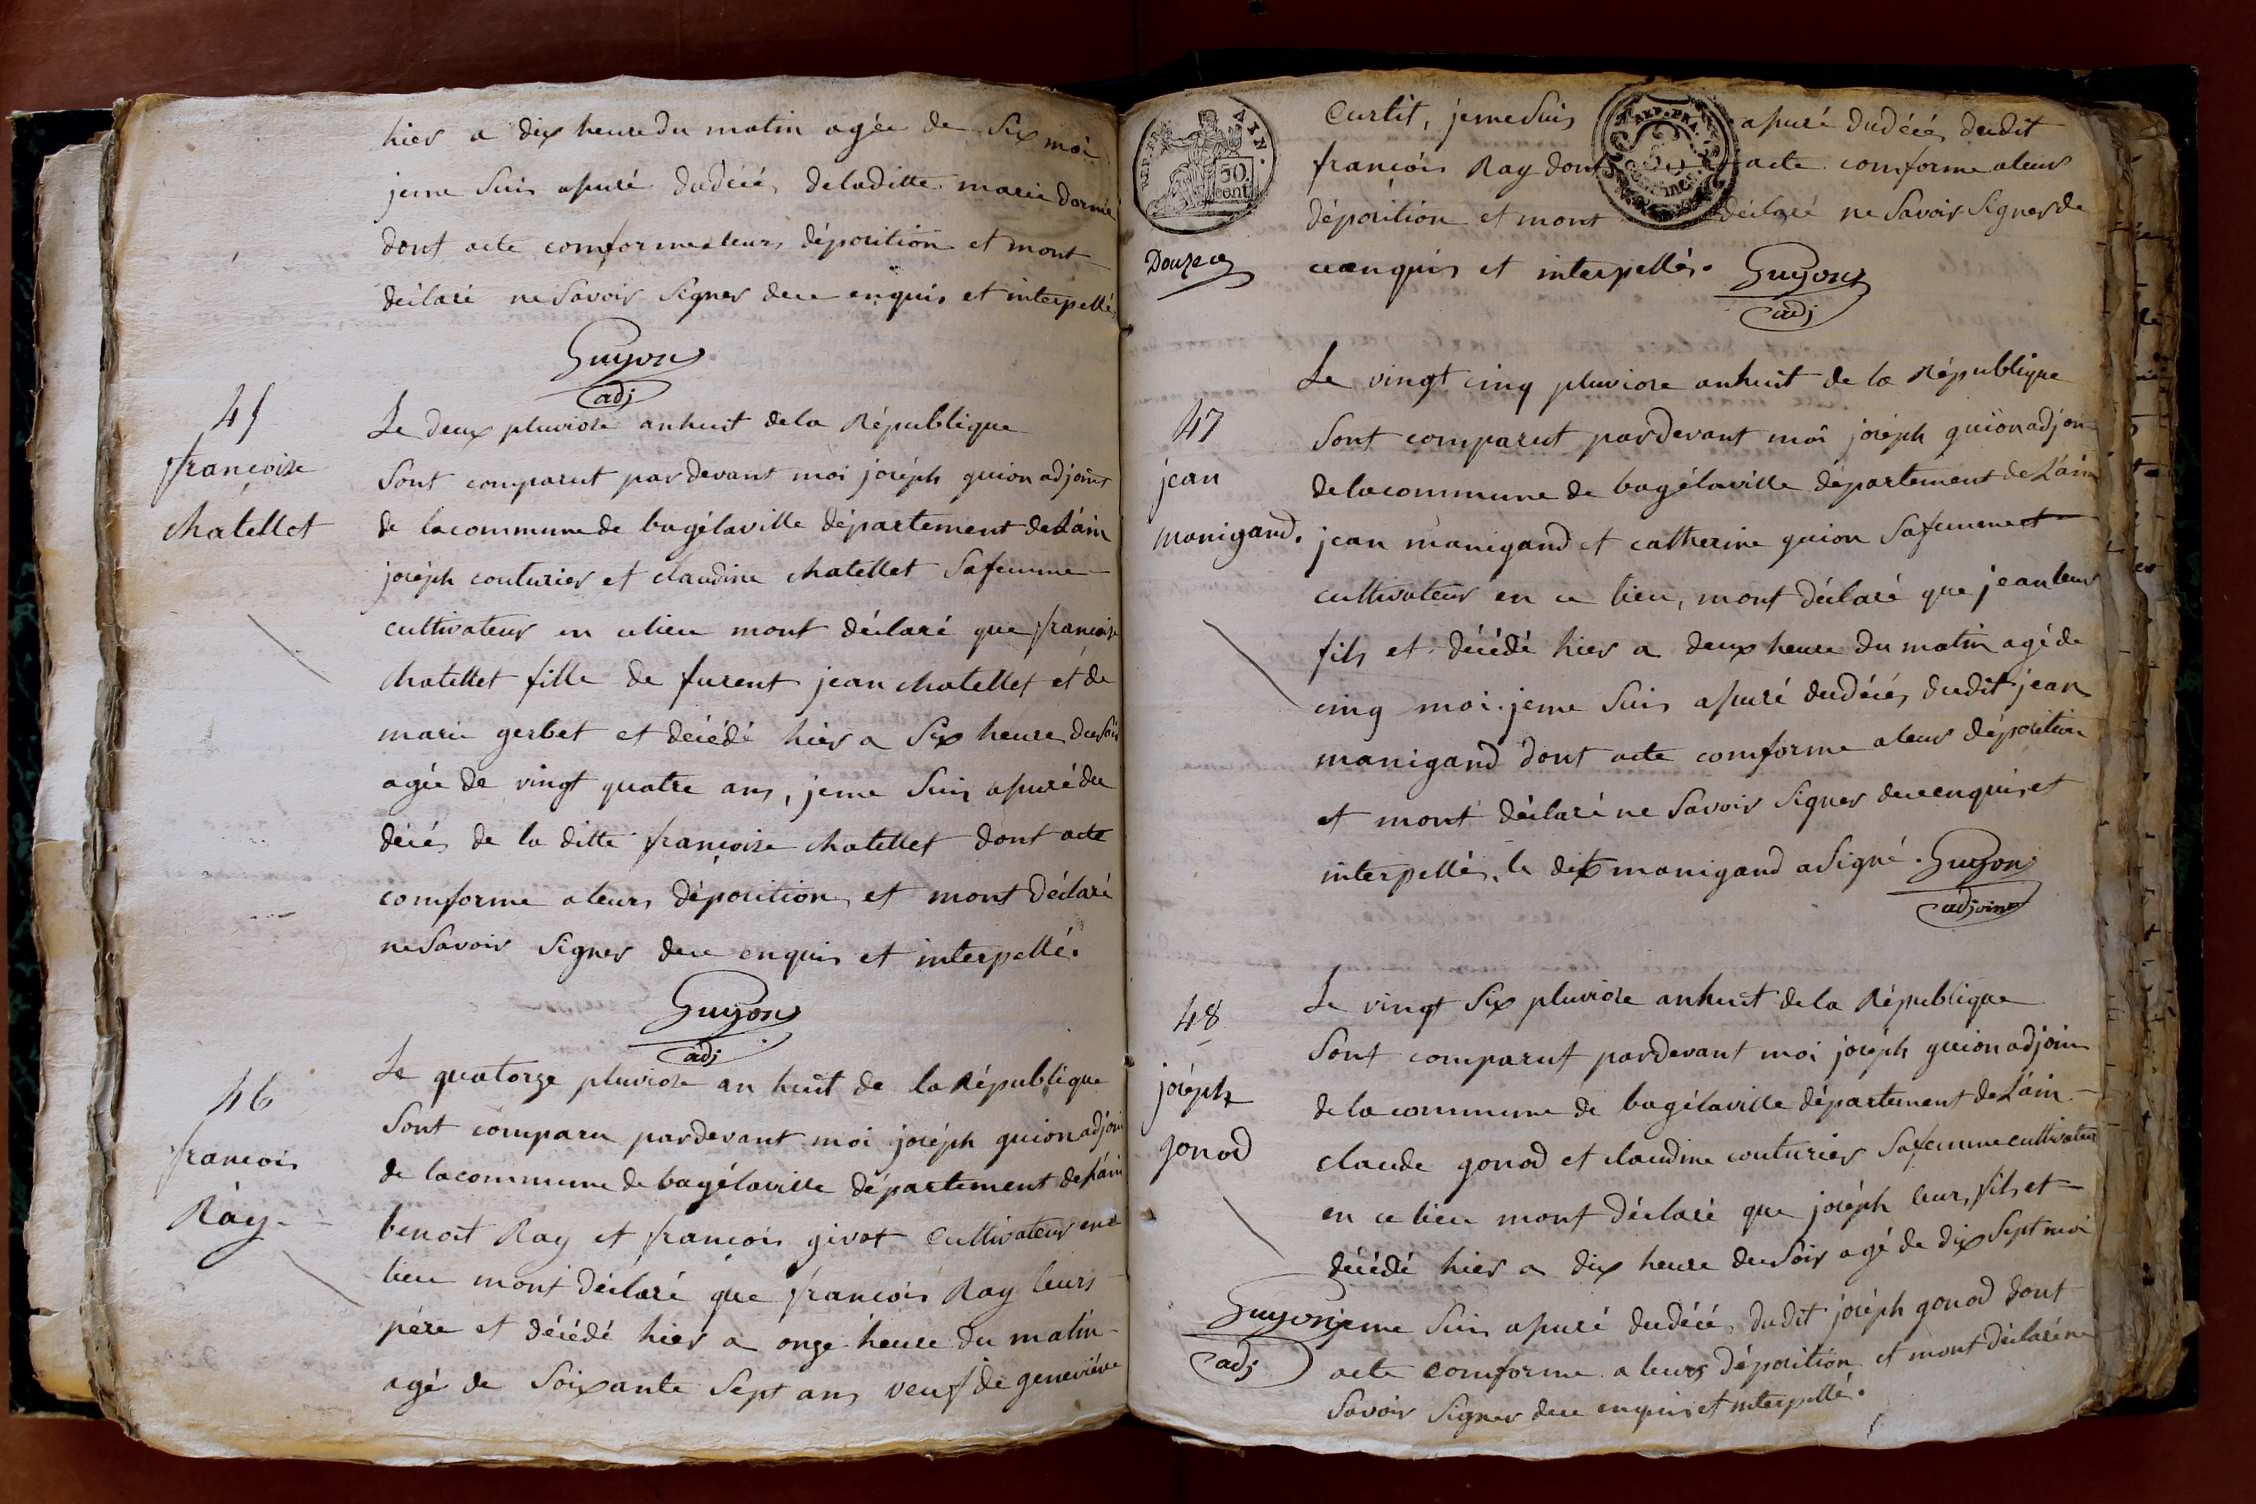 hier a dix heure du matin agée de Six moi
jeme Suis assuré du décés de laditte marie
dont acte comforme aleurs déposition et mont
déclaré ne Savoir Signer de ce enquis et interpellé
Guyon
adj
45
françoise
chatellet
Le deux pluviose an huit de la République
Sont comparut pardevant moi joséph guion adjoint
de la commune de bagélaville département de L'ain
joséph couturier et claudine chatellet Safemme
cultivateur en celieu mont déclaré que françoise
chatellet fille de furent jean chatellet et de
marie gerbet et décédé hier a Six heure du Soir
agée de vingt quatre ans, jeme Suis assuré du
décés de la ditte françoise chatellet dont acte
comforme aleurs déposition et mont déclaré
ne Savoir Signer de ce enquis et interpellé.
Guyon
adj
46
francois
Ray
Le quatorze pluviose an huit de la République
Sont comparu pardevant moi joséph guion adjoin
de la commune de bagélaville département de L'ain
benoit Ray et francois givot Cultivateur en ce
lieu mont déclaré que francois Ray leurs
pére et décédé hier a onze heure du matin
agé de Soixante Sept ans veuf de geneviéve
REP. FRA.
AIN.
50
cent.
Douze ce
REP. FRA.
Curtit, jeme Suis assuré du décés dudit
francois Ray dont acte comforme aleurs
déposition et mont déclaré ne Savoir Signer de
ce enquis et interpellés. Guyon
adj
47
jean
manigand.
Le vingt cinq pluviose an huit de la République
Sont comparut pardevant moi joséph guion adjoin
de la commune de bagélaville département de L'ain
jean manigand et catherine guion Safemme et
cultivateur en ce lieu, mont déclaré que jean leur
fils et décédé hier a deux heure du matin agé de
cinq moi. jeme Suis assuré du décés dudit jean
manigand dont acte comforme aleur déposition
et mont déclaré ne Savoir Signer de ce enquis et
interpellés, le dit manigand a Signé. Guyon
adjoint
48
joséph
gonod
Le vingt Six pluviose an huit de la République
Sont comparut pardevant moi joséph guion adjoin
de la commune de bagélaville département de L'ain
claude gonod et claudine couturier Safemme cultivateur
en ce lieu mont déclaré que joséph leurs fils et
décédé hier a dix heure du Soir agé de dix Sept moi
Guyon jeme Suis assuré du décés dudit joséph gonod dont
adj
acte comforme a leurs déposition et mont déclaré ne
Savoir Signer de ce enquis et interpellé.